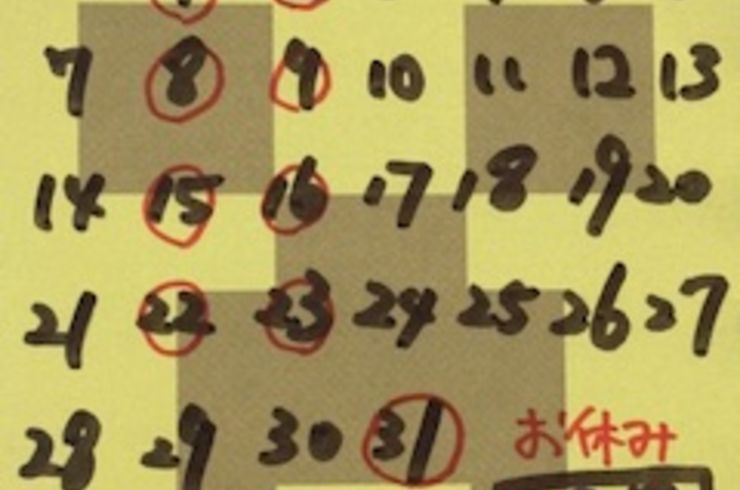 7 8 9 10 11 12 13
14 15 16 17 18 19 20
21 22 23 24 25 26 27
28 29 30 31 お休み